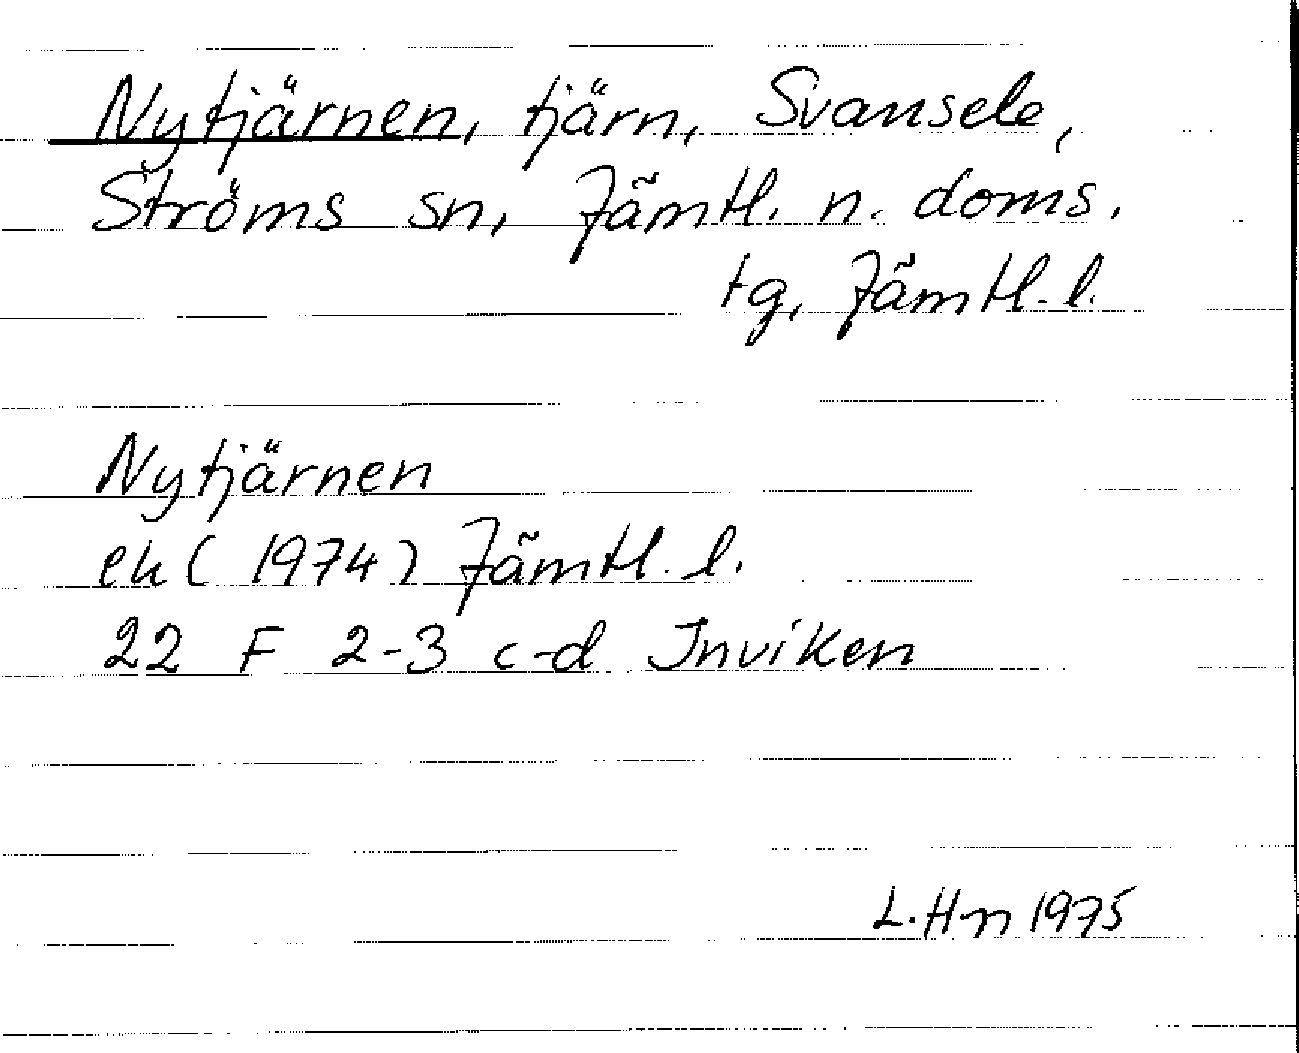 Nytjärnen, tjärn, Svansele,
Ströms sn, Jämtl. n. doms.
tg, Jämtl. l.
Nytjärnen
ek (1974) Jämtl. l.
22 F 2-3 c-d Inviken
L. Hn 1975